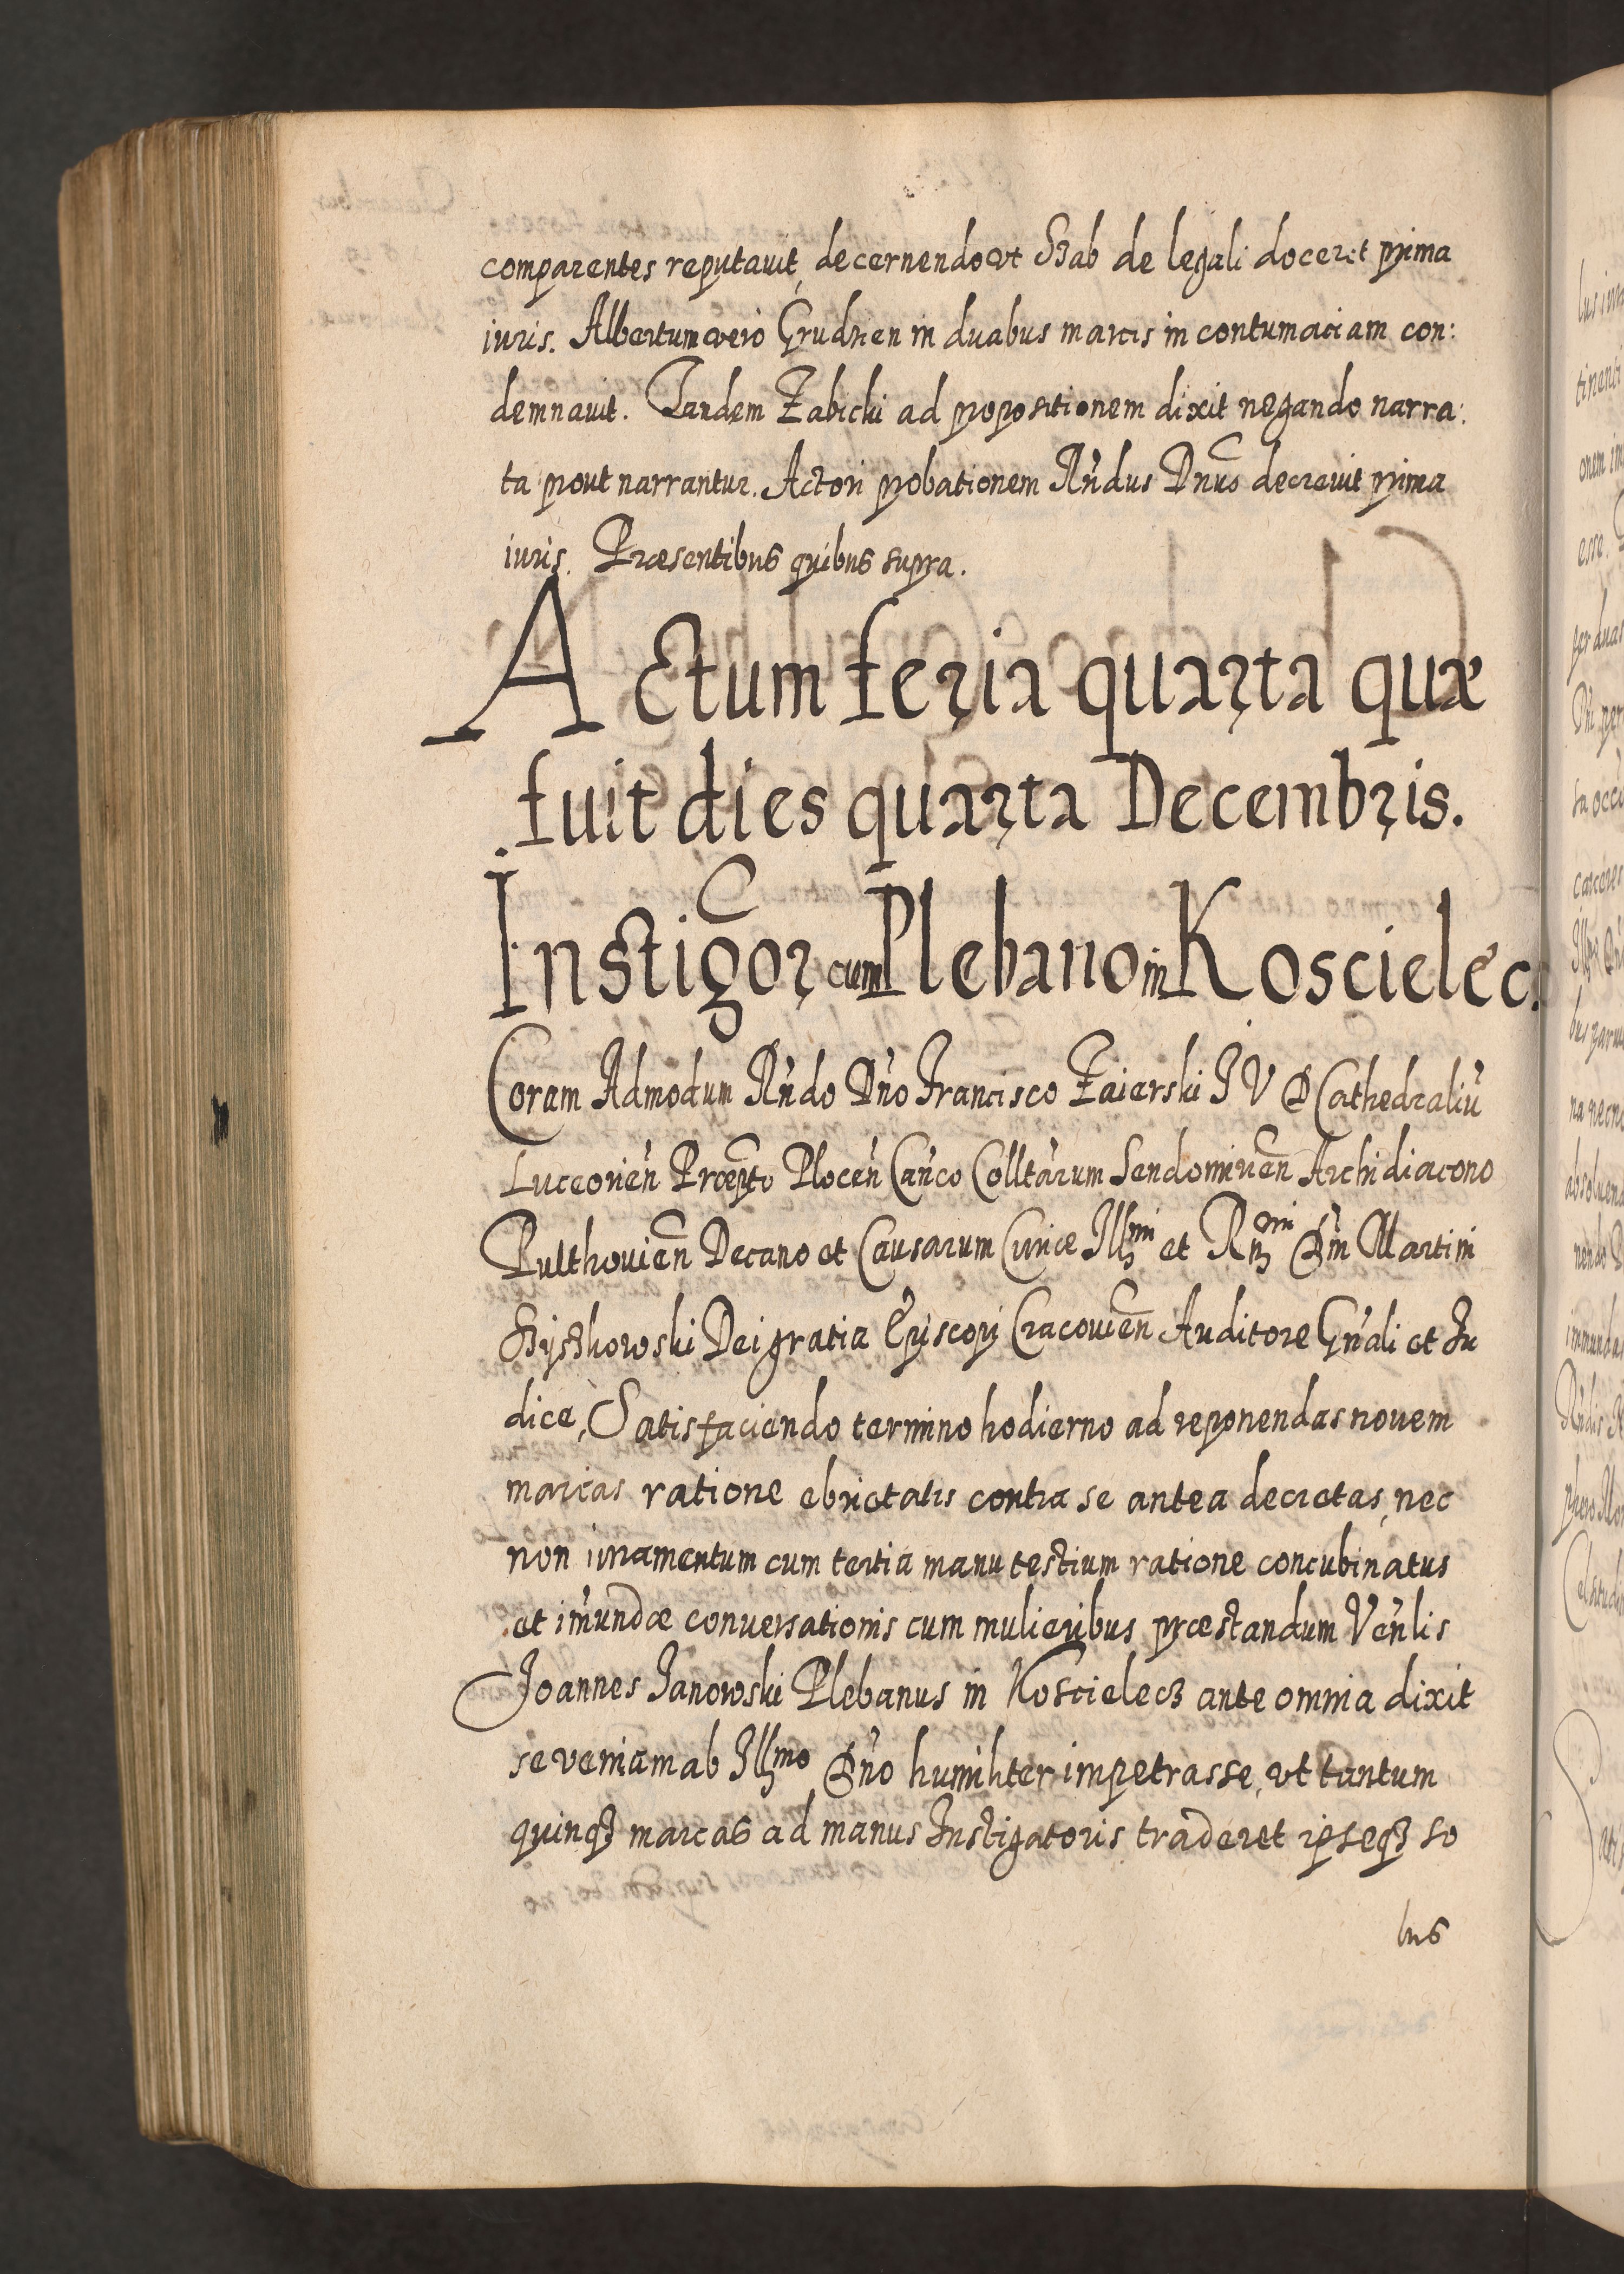 comparentes reputauit, decernendo vt Szab de legali doceret prima
iuris. Albertum vero Grudzien in duabus marcis in contumaciam con:
demnauit. Tandem Zabicki ad propositionem dixit negando narra:
ta prout narrantur. Actori probationem Rndus Dnus decreuit prima
iuris. Præsentibus quibus supra.
Actum feria quarta quæ
fuit dies quarta Decembris.
Instigor cum Plebano in Koscielec:
Coram Admodum Rndo Dno Francisco Zaierski I V D Cathedraliu
Luceorien Præpto Plocen Canco Colltarum Sendomirien Archidiacono
Pulthouien Decano et Causarum Curiæ Illmi et Rmi Dni Martini
Szyszkowski Dei gratia Episcopi Cracouien Auditore Gnali et Iu
dice, Satisfaciendo termino hodierno ad reponendas nouem
marcas ratione ebrietatis contra se antea decretas, nec
non iuramentum cum tertia manu testium ratione concubinatus
et imundæ conuersationis cum mulieribus præstandum Venlis
Joannes Janowski Plebanus in Koscielecz ante omnia dixit
se veniam ab Illmo Dno humiliter impetrasse, vt tantum
quinqз marcas ad manus Instigatoris traderet ipseqз so
lus